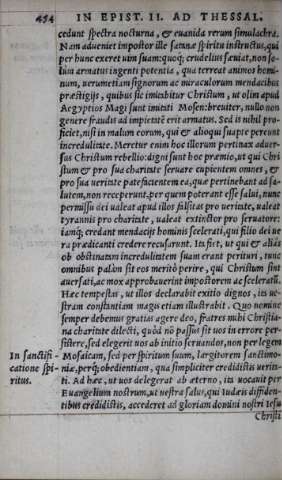 454 IN EPIST. II. AD THESSAL.
cedunt spectra nocturna, & euanida rerum simulachra.
Nam adueniet impostor ille satanæ spiritu instructus, qui
per hunc exeret uim suam: quoq; crudelius sæuiat, non so-
lum armatus ingenti potentia, qua terreat animos homi-
num, uerumetiam signorum ac miraculorum mendacibus
præstigijs, quibus sic imitabitur Christum, ut olim apud
Aegyptios Magi sunt imitati Mosen: breuiter, nullo non
genere fraudis ad impietatē erit armatus. Sed is nihil pro-
ficiet, nisi in malum eorum, qui & alioqui suapte pereunt
incredulitate. Meretur enim hoc illorum pertinax aduer-
sus Christum rebellio: digni sunt hoc præmio, ut qui Chri
stum & pro sua charitate seruare cupientem omnes, &
pro sua ueritate patefacientem ea, quæ pertinebant ad sa-
lutem, non receperunt, per quem poterant esse salui, nunc
permissu dei ualeat apud illos falsitas pro ueritate, ualeat
tyrannis pro charitate, ualeat extinctor pro seruatore:
iamq; credant mendacijs hominis scelerati, qui filio dei ue
ra prædicanti credere recusarunt. Ita fiet, ut qui & aliàs
ob obstinatam incredulitatem suam erant perituri, nunc
omnibus palàm sit eos meritò perire, qui Christum sint
auersati, ac mox approbauerint impostorem ac sceleratū.
Hæc tempestas, ut illos declarabit exitio dignos, ita ue-
stram constantiam magis etiam illustrabit. Quo nomine
semper debemus gratias agere deo, fratres mihi Christia-
na charitate dilecti, quòd nō passus sit uos in errore per-
sistere, sed elegerit uos ab initio seruandos, non per legem
In sanctifi- Mosaicam, sed per spiritum suum, largitorem sanctimo-
catione spi- niæ, perq; obedientiam, qua simpliciter credidistis uerita-
ritus. ti. Ad hæc, ut uos delegerat ab æterno, ita uocauit per
Euangelium nostrum, ut uestra salus, qui Iudæis diffiden-
tibus credidistis, accederet ad gloriam domini nostri Iesu
Christi